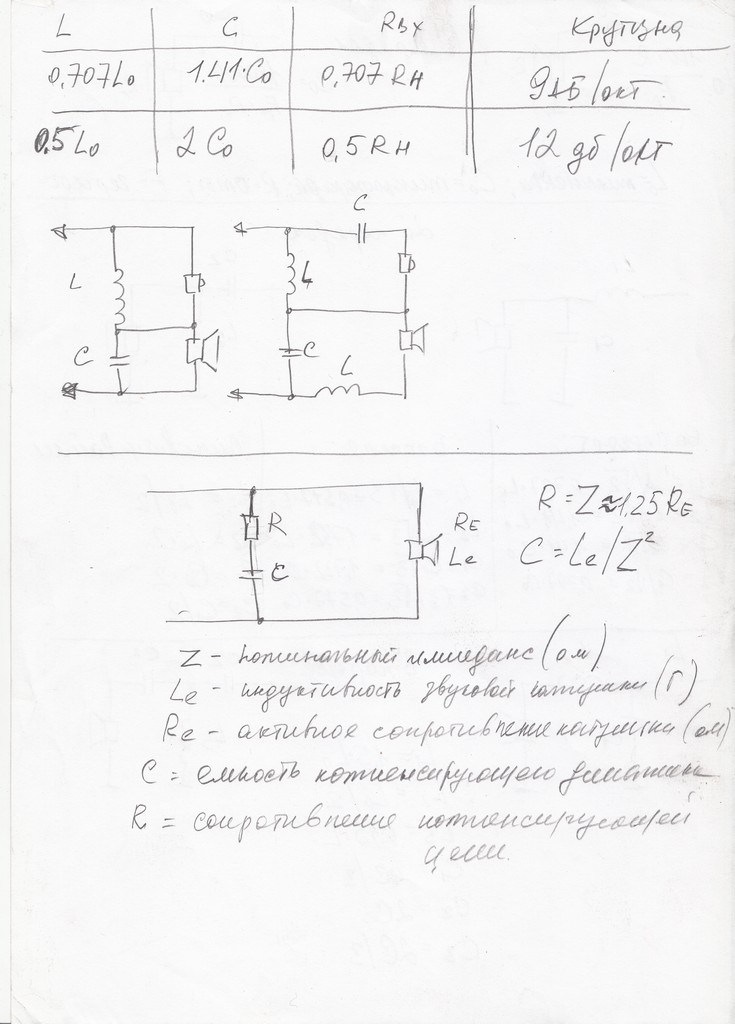 L C Rвх Крутизна
0,707Lo 1.41·Co 0,707 Rн 9дБ/окт
0.5Lo 2Co 0,5 Rн 12 дб/окт
C
L L
C C
L
R RE R=Z≈1,25RE
C Le C=Le/Z²
Z - номинальный импеданс (ом)
Le - индуктивность звуковой катушки (Г)
Re - активное сопротивление катушки (ом)
C = емкость компенсирующего динамика
R = сопротивление компенсирующей
цепи.